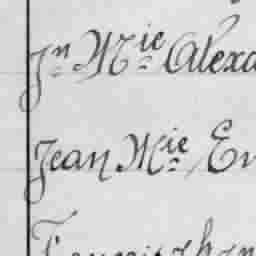 Jn Mie Alexa
Jean Mie Em